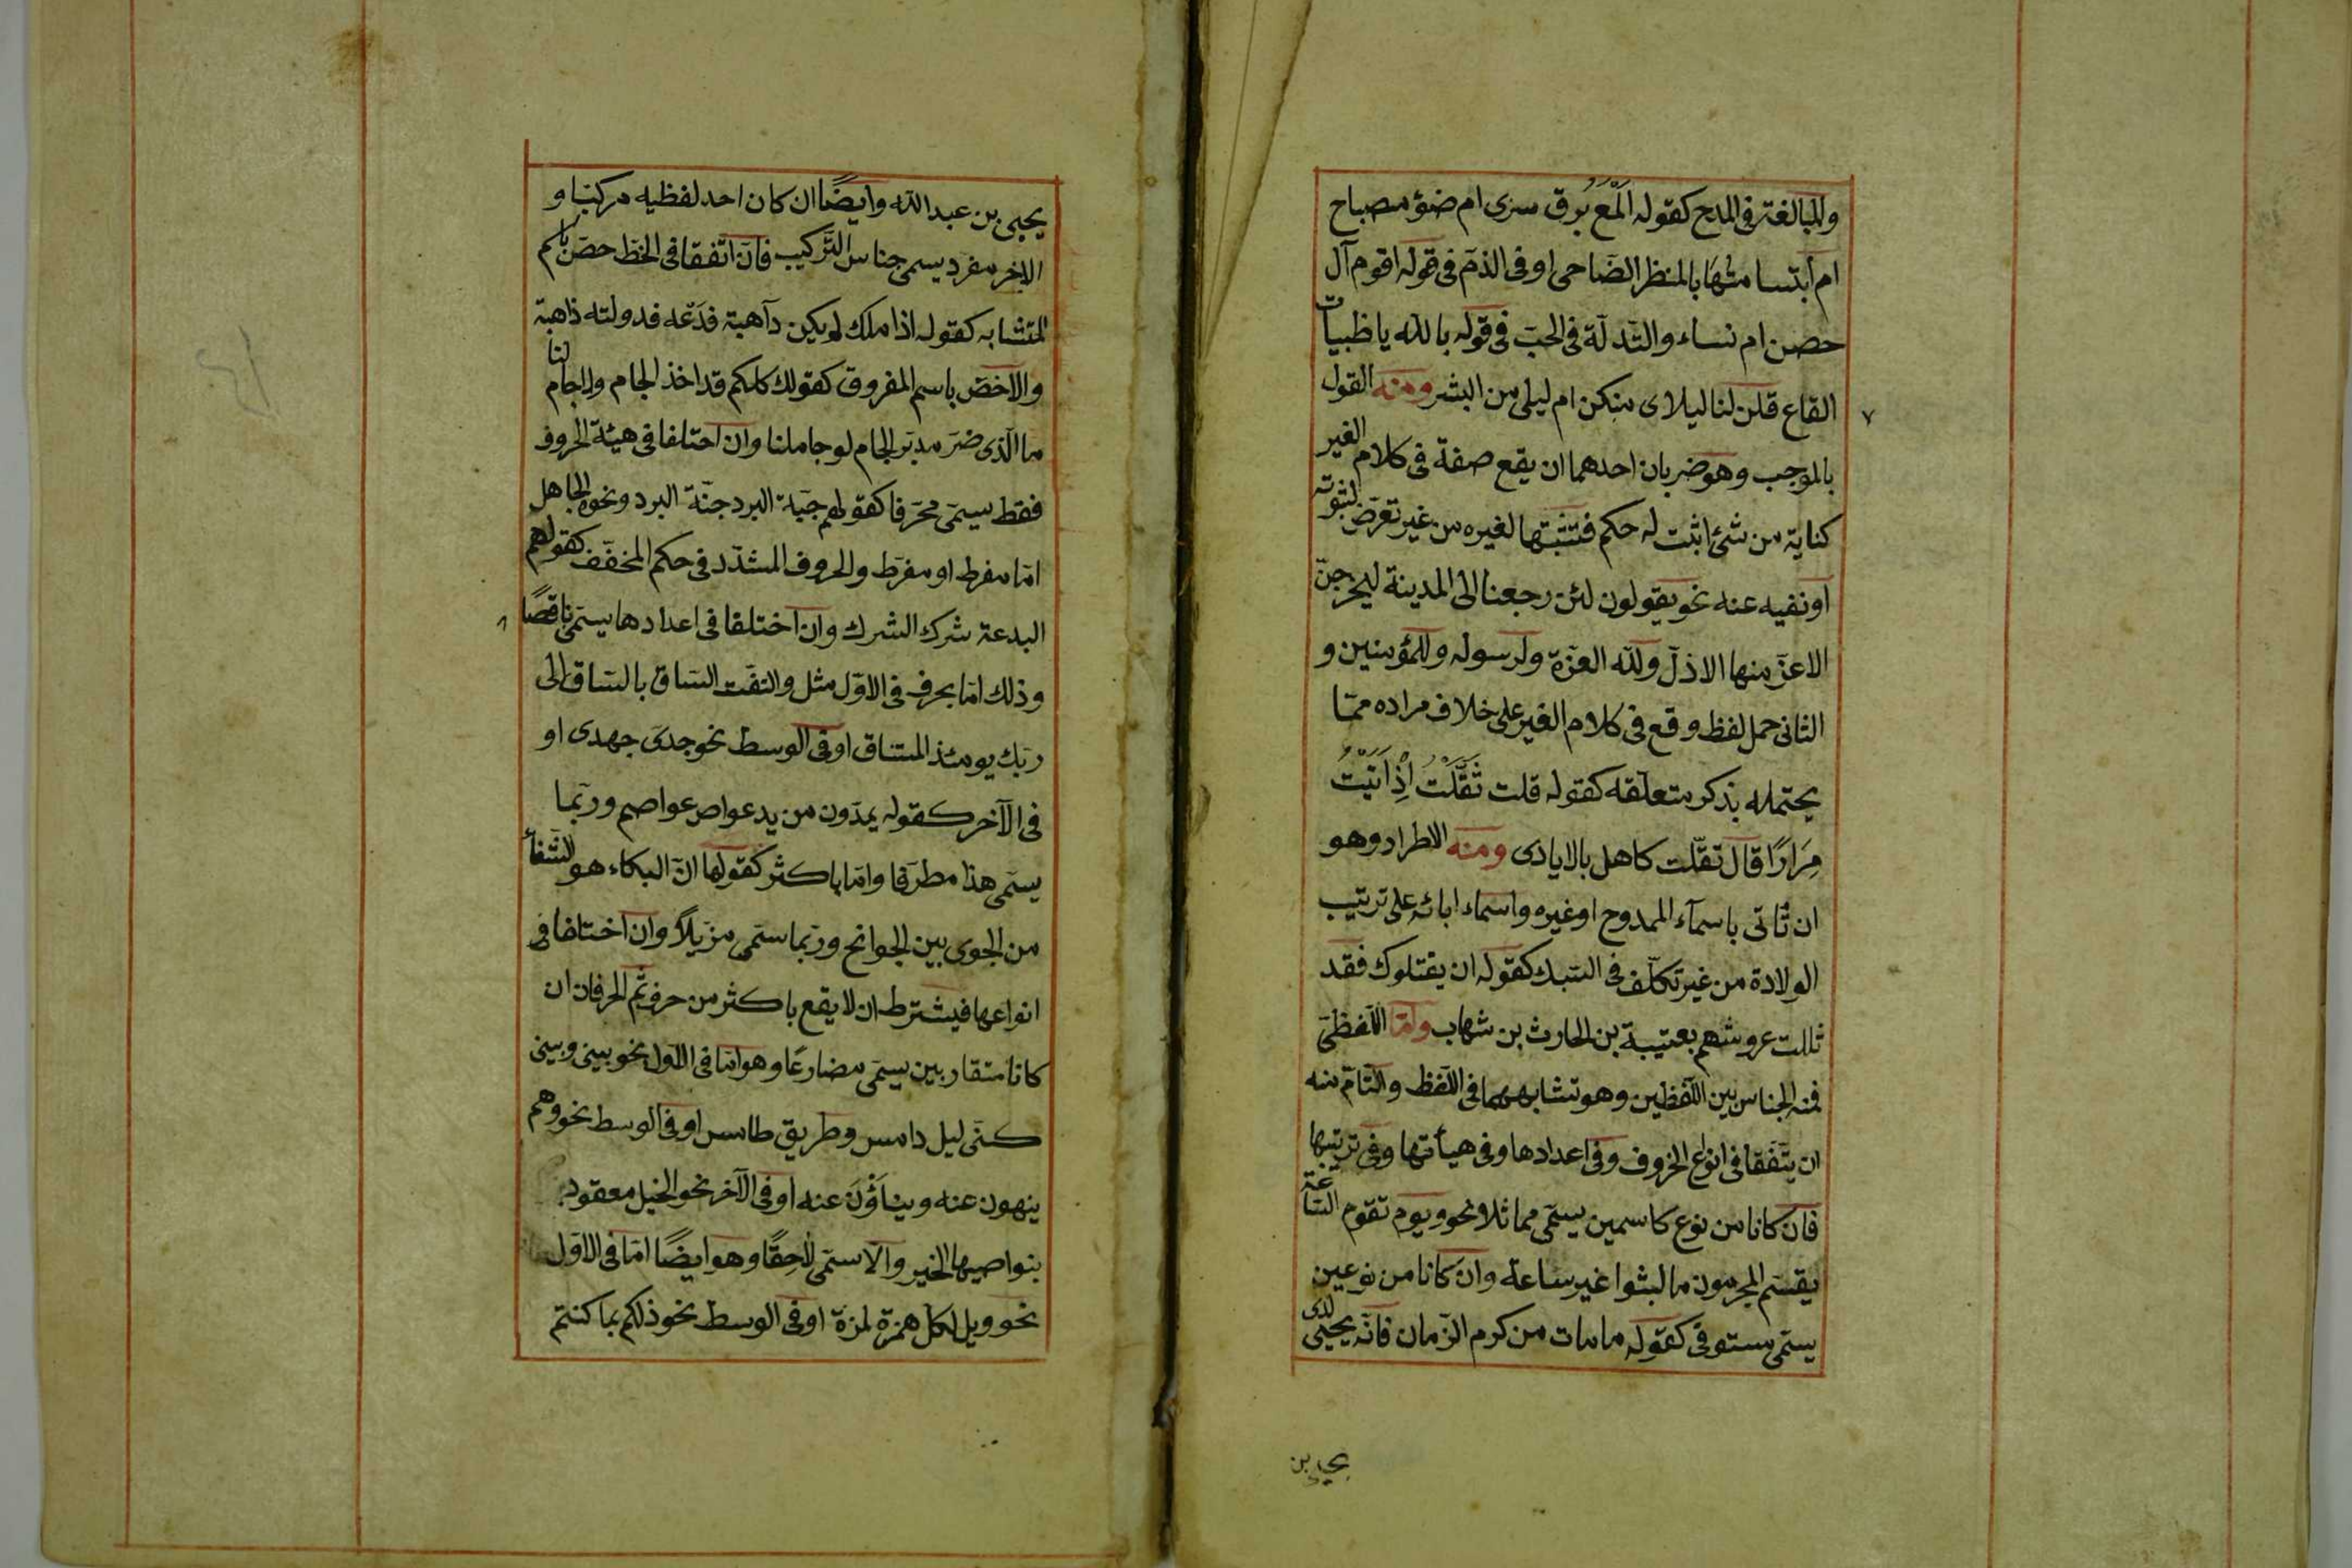 والمبالغة فی المدح کقوله اَلَمَعَ بُرق سری ام ضوٴ مصباح
ام اُبتسامتُهَا بالمنظر الضّاحی او فی الذمّ فی قوله اقوم آل
حصن ام نساء والتّدلّة فی الحبّ فی قوله بالله یا ظبیات
القاع قلن لنا لیلای منکن ام لیلی من البشر ومنه القول
بالموجب وهو ضربان احدهما ان یقع صفة فی کلام الغیر
کنایة من شئ اثبت له حکم فتثبتها لغیره من غیر تعرّض لثبوته
او نفیه عنه نحو یقولون لئن رجعنا الی المدینة لیخرجنّ
الاعزّ منها الاذلّ ولله العزّة ولرسوله وللمؤمنین و
الثانی حمل لفظ وقع فی کلام الغیر علی خلاف مراده ممّا
یحتمله بذکر متعلّقه کقوله قلت ثَقَّلْتُ اِذْ اَتَیْتُ
مِرَارًا قال ثقّلت کاهل بالایادی ومنه الاطراد وهو
ان تُاتی باسمآء الممدوح او غیره واسماء ابائه علی ترتیب
الولادة من غیر تکلّف فی السّبک کقوله ان یقتلوک فقد
ثللت عروشهم بعتیبة بن الحارث بن شهاب وامّا اللّفظیّ
فمنه الجناس بین اللّفظین وهو تشابههما فی اللّفظ والتّامّ منه
ان یتّفقا فی انواع الحروف وفی اعدادها وفی هیأتها وفی ترتیبها
فان کانا من نوع کاسمین یسمّی مماثلا نحو ویوم تقوم السّاعة
یقسم المجرمون ما لبثوا غیر ساعة وان کانا من نوعین
یسمّی مستوفیً کقوله مامات من کرم الزّمان فانّه یحیی لدی
یحیی بن
یحیی بن عبدالله وایضًا ان کان احد لفظیه مرکبا و
الاخر مفرد یسمی جناس الترکیب فان اتّفقا فی الخطّ خصّ باسم
المتشابه کقوله اذا ملک لم یکن ذآهبة فدَعه فدولته ذاهبة
والا خصّ باسم المفروق کقولک کلکم قد اخذ الجام ولا جام لنا
ما الّذی ضرّ مدیر الجام لو جاملنا وان اختلفا فی هیئة الحروف
فقط یسمّی محرّفا کقولهم جبّة البرد جنّة البرد ونحوه الجاهل
امّا مفرط او مفرّط والحروف المشدّد فی حکم المخفّف کقولهم
البدعة شرک الشرک وان اختلفا فی اعدادها یسمّی ناقصًا
وذلک امّا بحرف فی الاوّل مثل والتفّت السّاق بالسّاق الی
ربّک یومئذ المساق او فی الوسط نحو جدّی جهدی او
فی الآخر کقوله یمدّون من ید عواص عواصم وربّما
یسمّی هذا مطرّفا وامّا باکثر کقولها انّ البکاء هو الشّفاء
من الجوی بین الجوانح وربّما سمّی مزیلاً وان اختلفا فی
انواعها فیشترط ان لا یقع باکثر من حرف ثم الحرفان ان
کانا متقاربین یسمّی مضارعًا وهو امّا فی الاوّل نحو بینی وبین
کنّی لیل دامس وطریق طامس او فی الوسط نحو وهم
ینهون عنه ویناَؤْنَ عنه او فی الآخر نحو الخیل معقود
بنواصیها الخیر والّا سمّی لاحِقًا وهو ایضًا امّا فی الاوّل
نحو ویل لکلّ همزة لمزة او فی الوسط نحو ذلکم بما کنتم